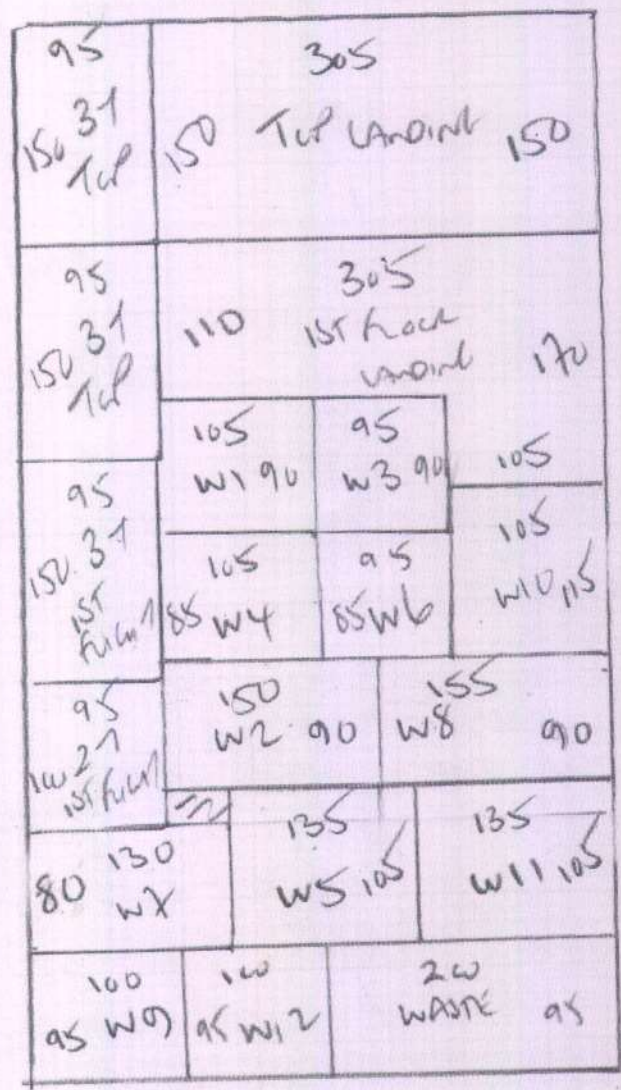 95
150 3T
TOP
305
150 TOP LANDING 150
95
150 3T
TOP
305
110 1ST FLOOR
LANDING 170
105
W1 90
95
W3 90
105
95
150 3T
1ST
FLIGHT
105
85 W4
95
85 W6
105
W10 115
95
100 2T
1ST FLIGHT
150
W2 90
155
W8 90
80 130
W7
135
W5 105
135
W11 105
100
95 W9
100
95 W12
200
WASTE 95